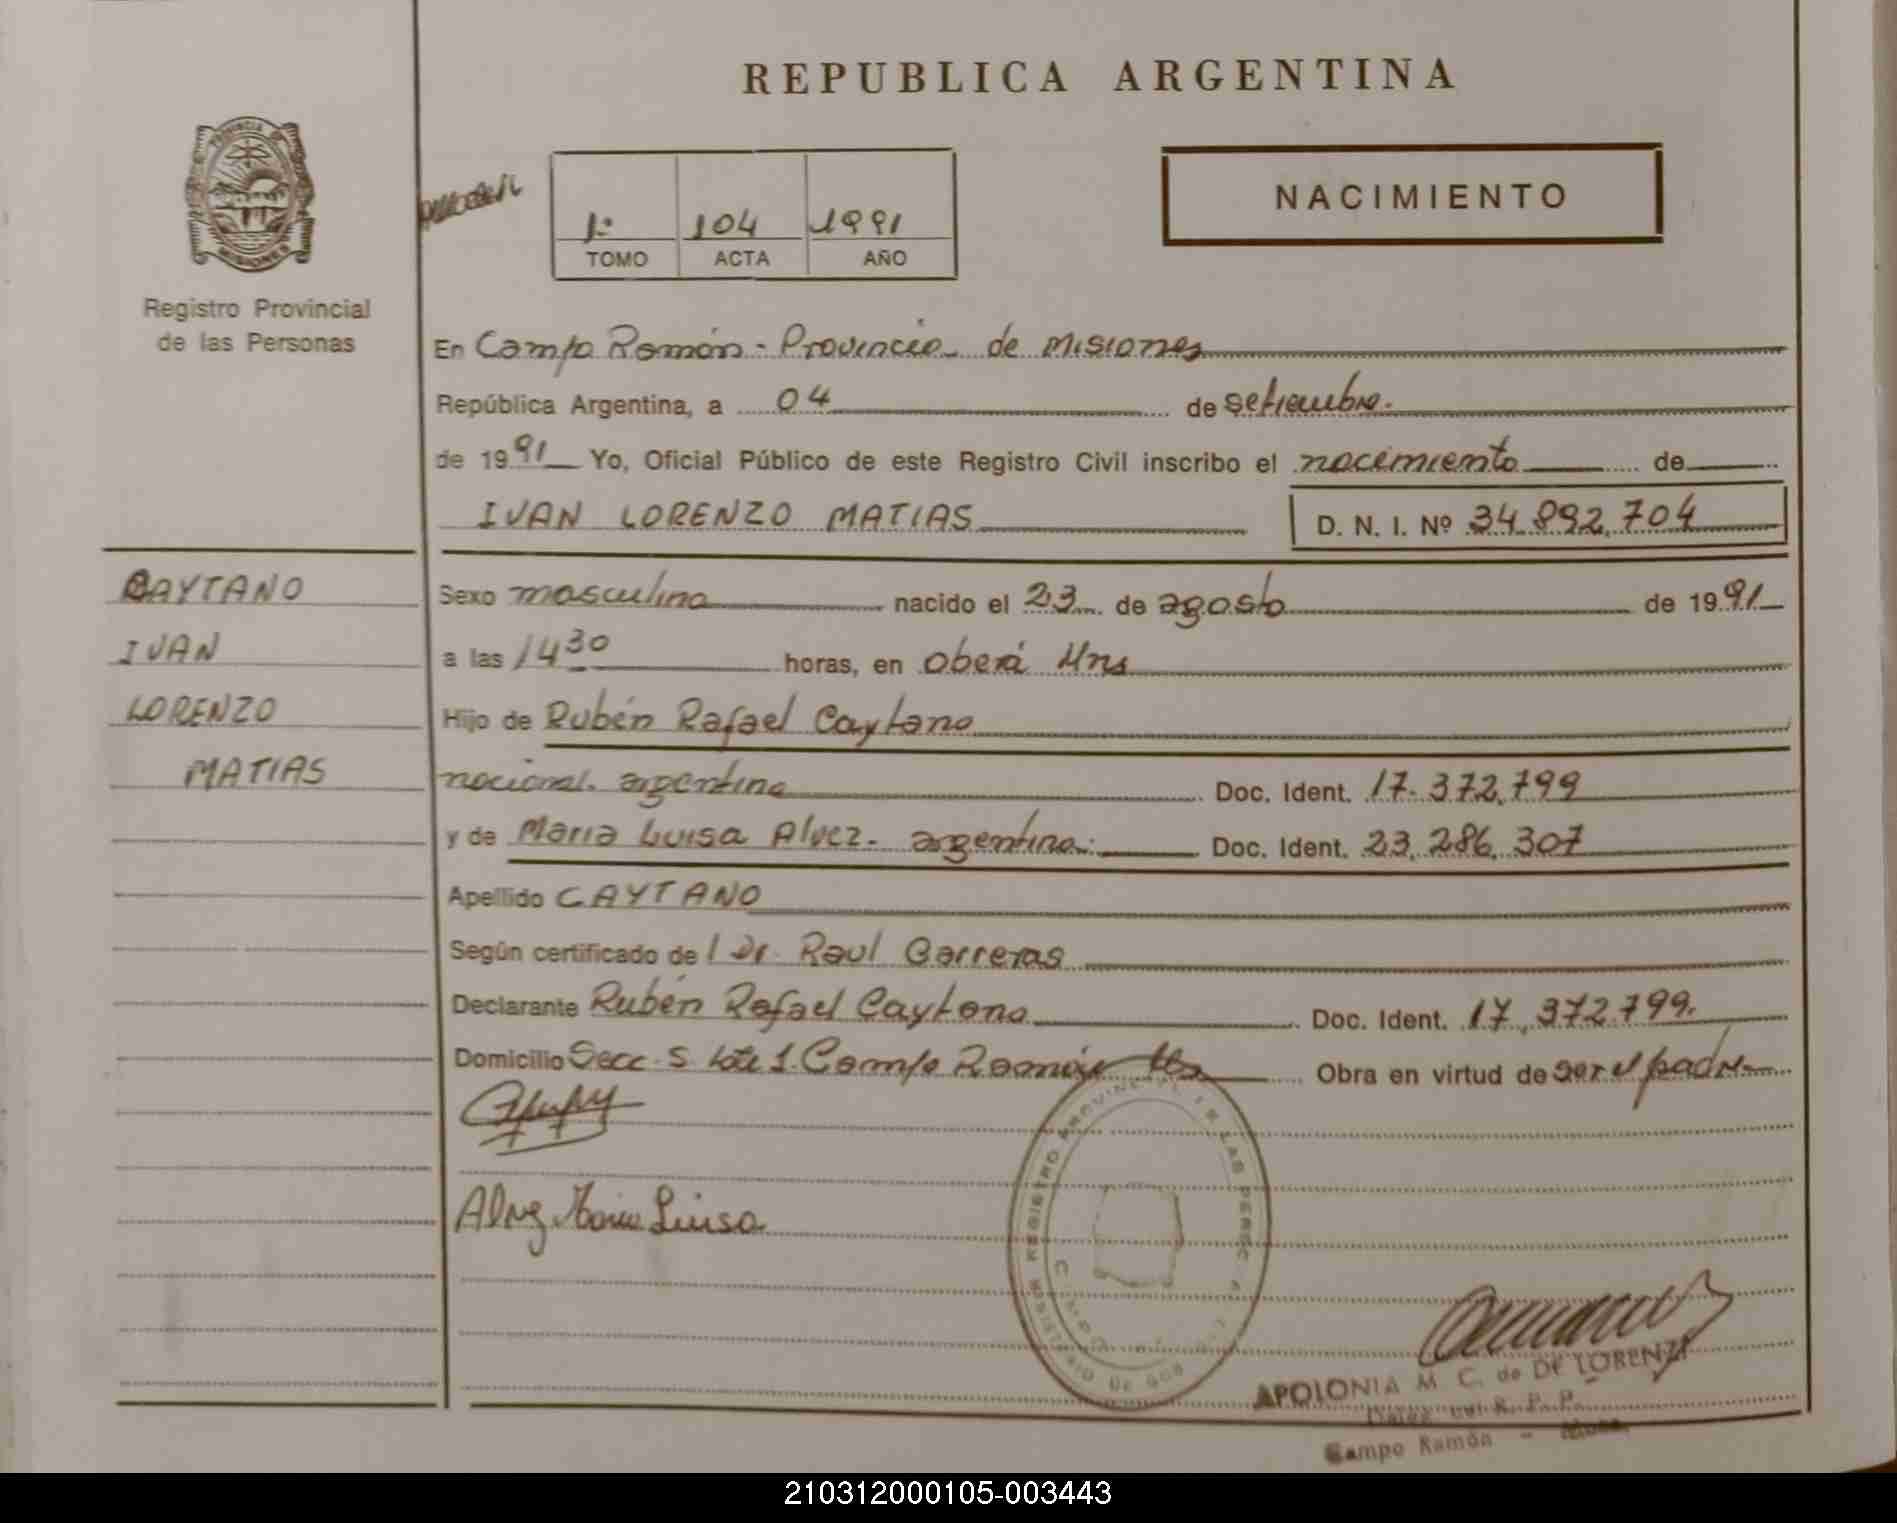 REPUBLICA ARGENTINA
PROVINCIA DE
MISIONES
Registro Provincial
de las Personas
1º 104 1991
TOMO ACTA AÑO
NACIMIENTO
En Campo Ramón - Provincia de Misiones
República Argentina, a 04 de setiembre.
de 1991 Yo, Oficial Público de este Registro Civil inscribo el nacimiento de
IVAN LORENZO MATIAS D. N. I. Nº 34.892.704
CAYTANO
IVAN
LORENZO
MATIAS
Sexo masculino nacido el 23 de agosto de 1991
a las 14 30 horas, en Oberá Mns
Hijo de Rubén Rafael Caytano
nacional. argentina Doc. Ident. 17.372.799
y de Maria Luisa Alvez. argentina. Doc. Ident. 23.286.307
Apellido CAYTANO
Según certificado de l Dr. Raul Carreras
Declarante Rubén Rafael Caytano Doc. Ident. 17.372.799.
Domicilio Secc. 5 Lote 1. Campo Ramón Mns Obra en virtud de ser el padre
Alvez Maria Luisa
REGISTRO PROVINCIAL DE LAS PERSONAS
MINISTERIO DE GOB
APOLONIA M. C. de DE LORENZI
R. P. P.
Campo Ramón - Mnes.
210312000105-003443